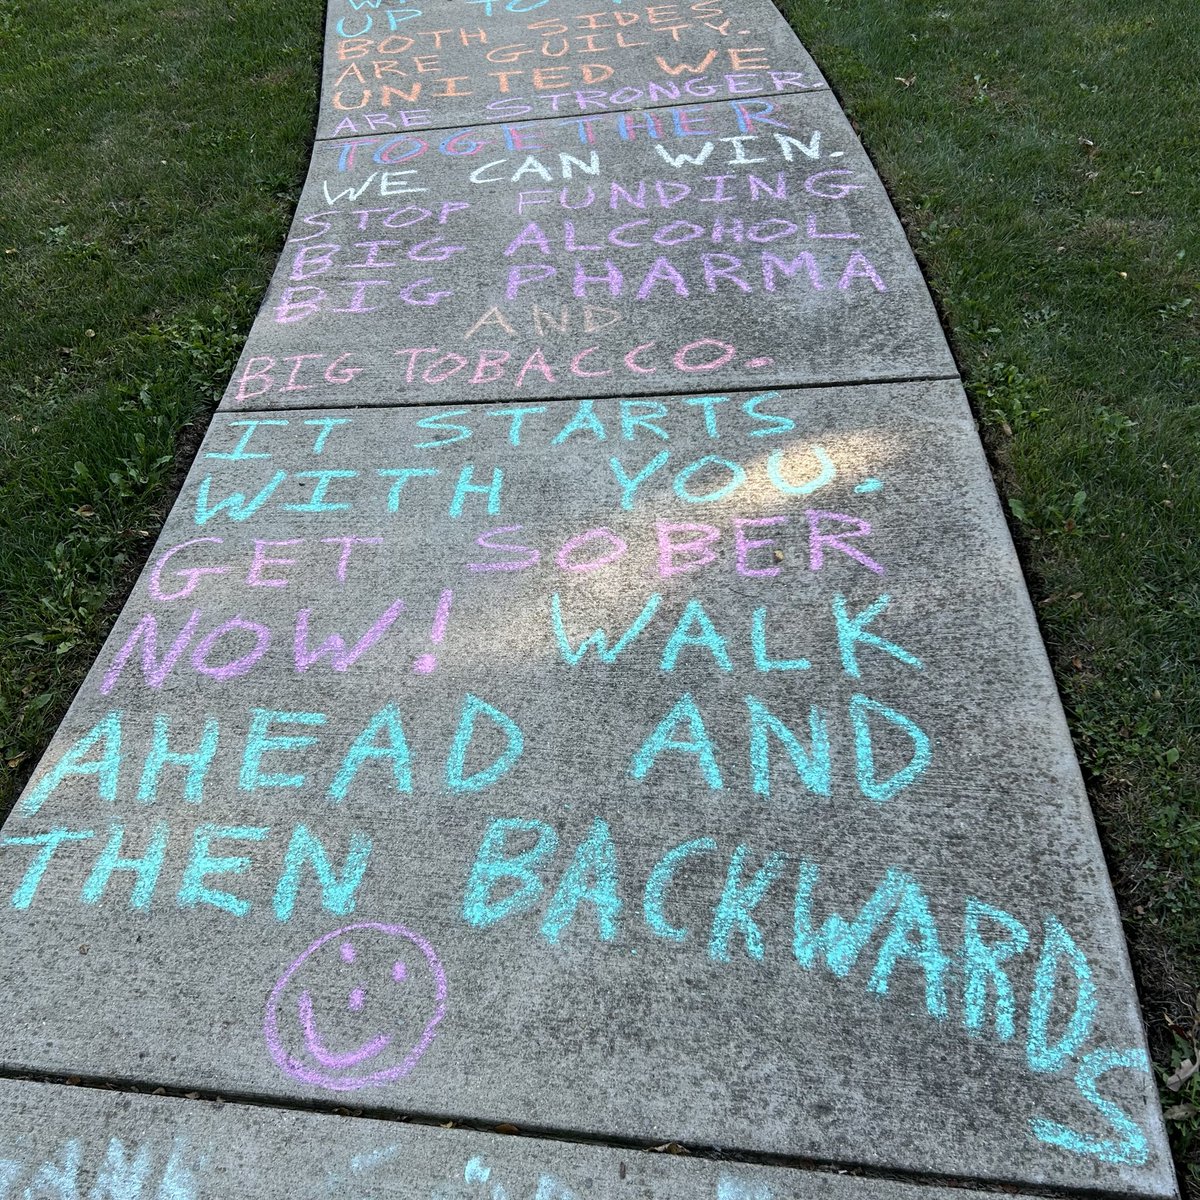 UP TO
BOTH SIDES
ARE GUILTY.
UNITED WE
ARE STRONGER.
TOGETHER
WE CAN WIN.
STOP FUNDING
BIG ALCOHOL
BIG PHARMA
AND
BIG TOBACCO.
IT STARTS
WITH YOU.
GET SOBER
NOW! WALK
AHEAD AND
THEN BACKWARDS